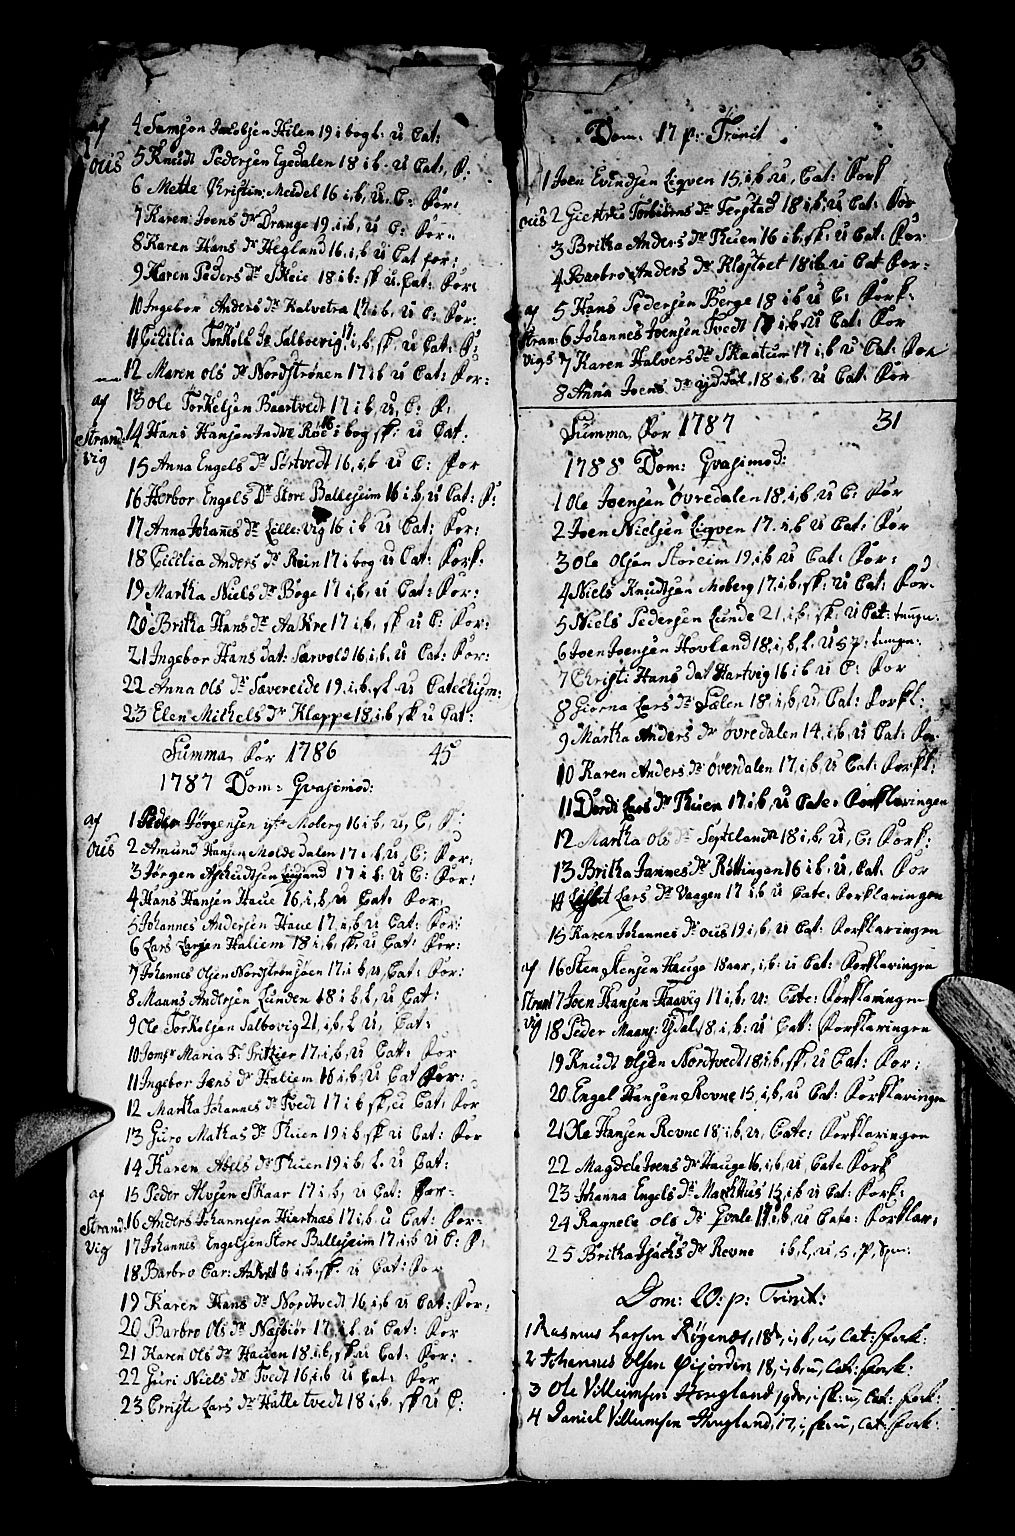 af
ous
4 Samson Jacobsen Hilen 19 i bog l: u Cat:
5 Knudt Pedersen Egedalen 18 i b. u Cat, F:
6 Mette Christin: Meidel 16 i b, u. C: For:
7 Karen Joens Dr Drange 19, i b, u C: For:
8 Karen Hans dr Hegland 16, i b, u Cat for:
9 Karen Peders Dr Skeie 18 i b: sk u Cat: For:
10 Ingebor Anders dr Kalvetra 17 i b, u C: For:
11 Cicilia Torkels Dr Salboevig 17. i b, sk, u Cat: F:
12 Maren Ols dr Nordströnen 17 i b u Cat: For:
af
Strand:
vig
13 Ole Torkelsen Baartvedt 17 i b, u, C: F,
14 Hans Hansen Indve Röe 16 i bog sk: u Cat:
15 Anna Engels Dr Sörtvedt 16, i b u C: For
16 Herbor Engels Dr Store Ballesheim 16 i b, u Cat: F:
17 Anna Johanes dr Lille: Vig 16 i b u Cat: For:
18 Cicilia Anders dr Rein 17 i bog u Cat: Fork:
19 Martha Niels dr Böge 17 i, b, u Cat: For:
20 Britha Hans dr Aadkre 17 i b, sk u C: For:
21 Ingebor Hans dat: Sævold 16, i b, u Cat: For:
22 Anna Ols dr Sævereide 19, i b, sk, u Catechism:
23 Elen Michels dr Klappe 18, i b sk u Cat:
Summa, For 1786 45
1787 Dom: Qvasimod:
af
ous
1 Peder Jörgensen ytr Moberg 16 i b, u, C, F:
2 Amund Hansen Moldedalen 17 i b, u, C; For;
3 Jörgen Askeldtsen Liujand 17 i b. u C: For:
4 Hans Hansen Haue 16, i, b, u Cat: For,
5 Johannes Andersen Haue 17, i b, u Cat: For:
6 Lars Larsen Haliem 18 i, b, sk, u Cat: For:
7 Johannes Olsen Nordströnsöen 17, i b, u, Cat: For:
8 Mauns Andersen Lunden 18 i b l, u Cat:
9 Ole Torkelsen Salbovig 21, i b, l u, Cat:
10 Jomfr Maria F. Fritzier 17, i b, u Catt: For
11 Ingebor Jans dr Haliem 16 i b, u Cat For:
12 Martha Johannes dr Tvedt 17 i b sk, u Cat: For
13 Guro Mathas dr Thuen 19 i b sk u Cat: For
14 Karen Abels dr Thuen 19 i b, l. u Cat:
af
Strand:
Vig
15 Peder Alvsen Skaar 17 i b, u Cat: For-
16 Anders Johannesen Hiertnæs 17 i b. u Cat: For-
17 Johannes Engelsen Store Ballesheim 17, i b u C: F:
18 Barbro Car: 16 i b, sk: u Cat: For
19 Karen Hans dr Nordtvedt 16 i b, u Cat: For:
20 Barbro Ols dr Næsbiör 17 i b, u Cat: For
21 Karen Ols dr Hauan 18, i b, sk u Cat: For:
22 Guri Niels dr Tvedt 16, i b, u Cat: For
23 Christe Lars dr Halletvedt 18 i b, sk u C:
5
Dom: 17 p: Trinit
1 Joen Evindsen Liqven 15, i b u, Cat: Fork
ous
2 Giertru Torbiörns dr Ferstad 18 i b, u Cat: For
3 Britha Anders dr Thuen 16 i b, sk: u Cat: For
4 Barbro Anders dr Klostvet 18 i b u Cat For:
af
Stran:
vigs
5 Hans Pedersen Berge 18 i b u C: Fork.
6 Johannes Joensen Tvedt 17 i, b, u Cat: For
7 Karen Halvers dr Skaatum 17 i, b, u Cat: For
8 Anna Joens dr ydstöl, 18, i b, u Cat: For
Summa, For 1787 31
1788 Dom: Qvasimod:
1 Ole Joensen Övredalen 18, i b, u C: For
2 Joen Nielsen Liqven 17, i b, u Cat: For
3 Ole Olsen Storeim 19, i b u Cat: For:
4 Niels Knudtsen Moberg 17, i b, sk: u Cat: For.
5 Niels Pedersen Lunde 21, i b, sk, u Cat: tungn:
6 Joen Joensen Hovland 18, i, b, l, u s p: tungn:
7 Christi Hans dat Hartvig 16 i b u C: For
8 Giorna Lars dr Sælen 18, i b, u, Cat: Forkl:
9 Martha Anders dr Övredalen 14, i b, u Cat: For
10 Karen Anders dr Överdalen 17, i b, u Cat: Forkl:
11 Dordi Lars dr Thuen 17, i b, u Cate: Forklaringen
12 Martha Ols dr Septeland 18 i b, u, C: Fork:
13 Britha Jannes dr Röttingen 16 i b, u, Cat. For
14 Lisbet Lars dr Vaagen 17 i b u Cate: Forklaringen
15 Karen Johannes dr ous 19 i b, u Cat: Forklaringen
af
Stran
vig
16 Sten Stensen Hauge 18 aar, i b: u Cat: Forklaringen
17 Joen Hansen Haavig 17 i, b, u: Cate: Forklaringen
18 Peder Mauns: Ydal 18, i b: u Catt: Forklaringen
19 Knudt Olsen Nordtvedt 18 i b, sk, u Cat: For:
20 Engel Hansen Revne 15, i b, u Cat: Forklaringen
21 Ole Hansen Revne 18 i b, u, Cate: Forklaringen
22 Magdele Joens dr Hauge 16, i b, u, Cate Fork
23 Johanna Engels dr Marchhus 15 i, b u Cat: Fork:
24 Ragnele Ols dr Qvale 17 i b, u Cate: Forklar,
25 Britha Isachs dr Revne i b, l, u, s, p, spr:
Dom: 20: p: Trinit:
1 Rasmus Larsen Röyenæs, 18, i, b, u, Cat: Fork:
2 Johannes Olsen Öijorden 18, i, b, u, Cat: Fork:
3 Ole Villumsen Hougland 19de, i sk: u, Cat: Fork:
4 Daniel Villumsen Hougland, 17, i, sk: u, Cat: Fork: